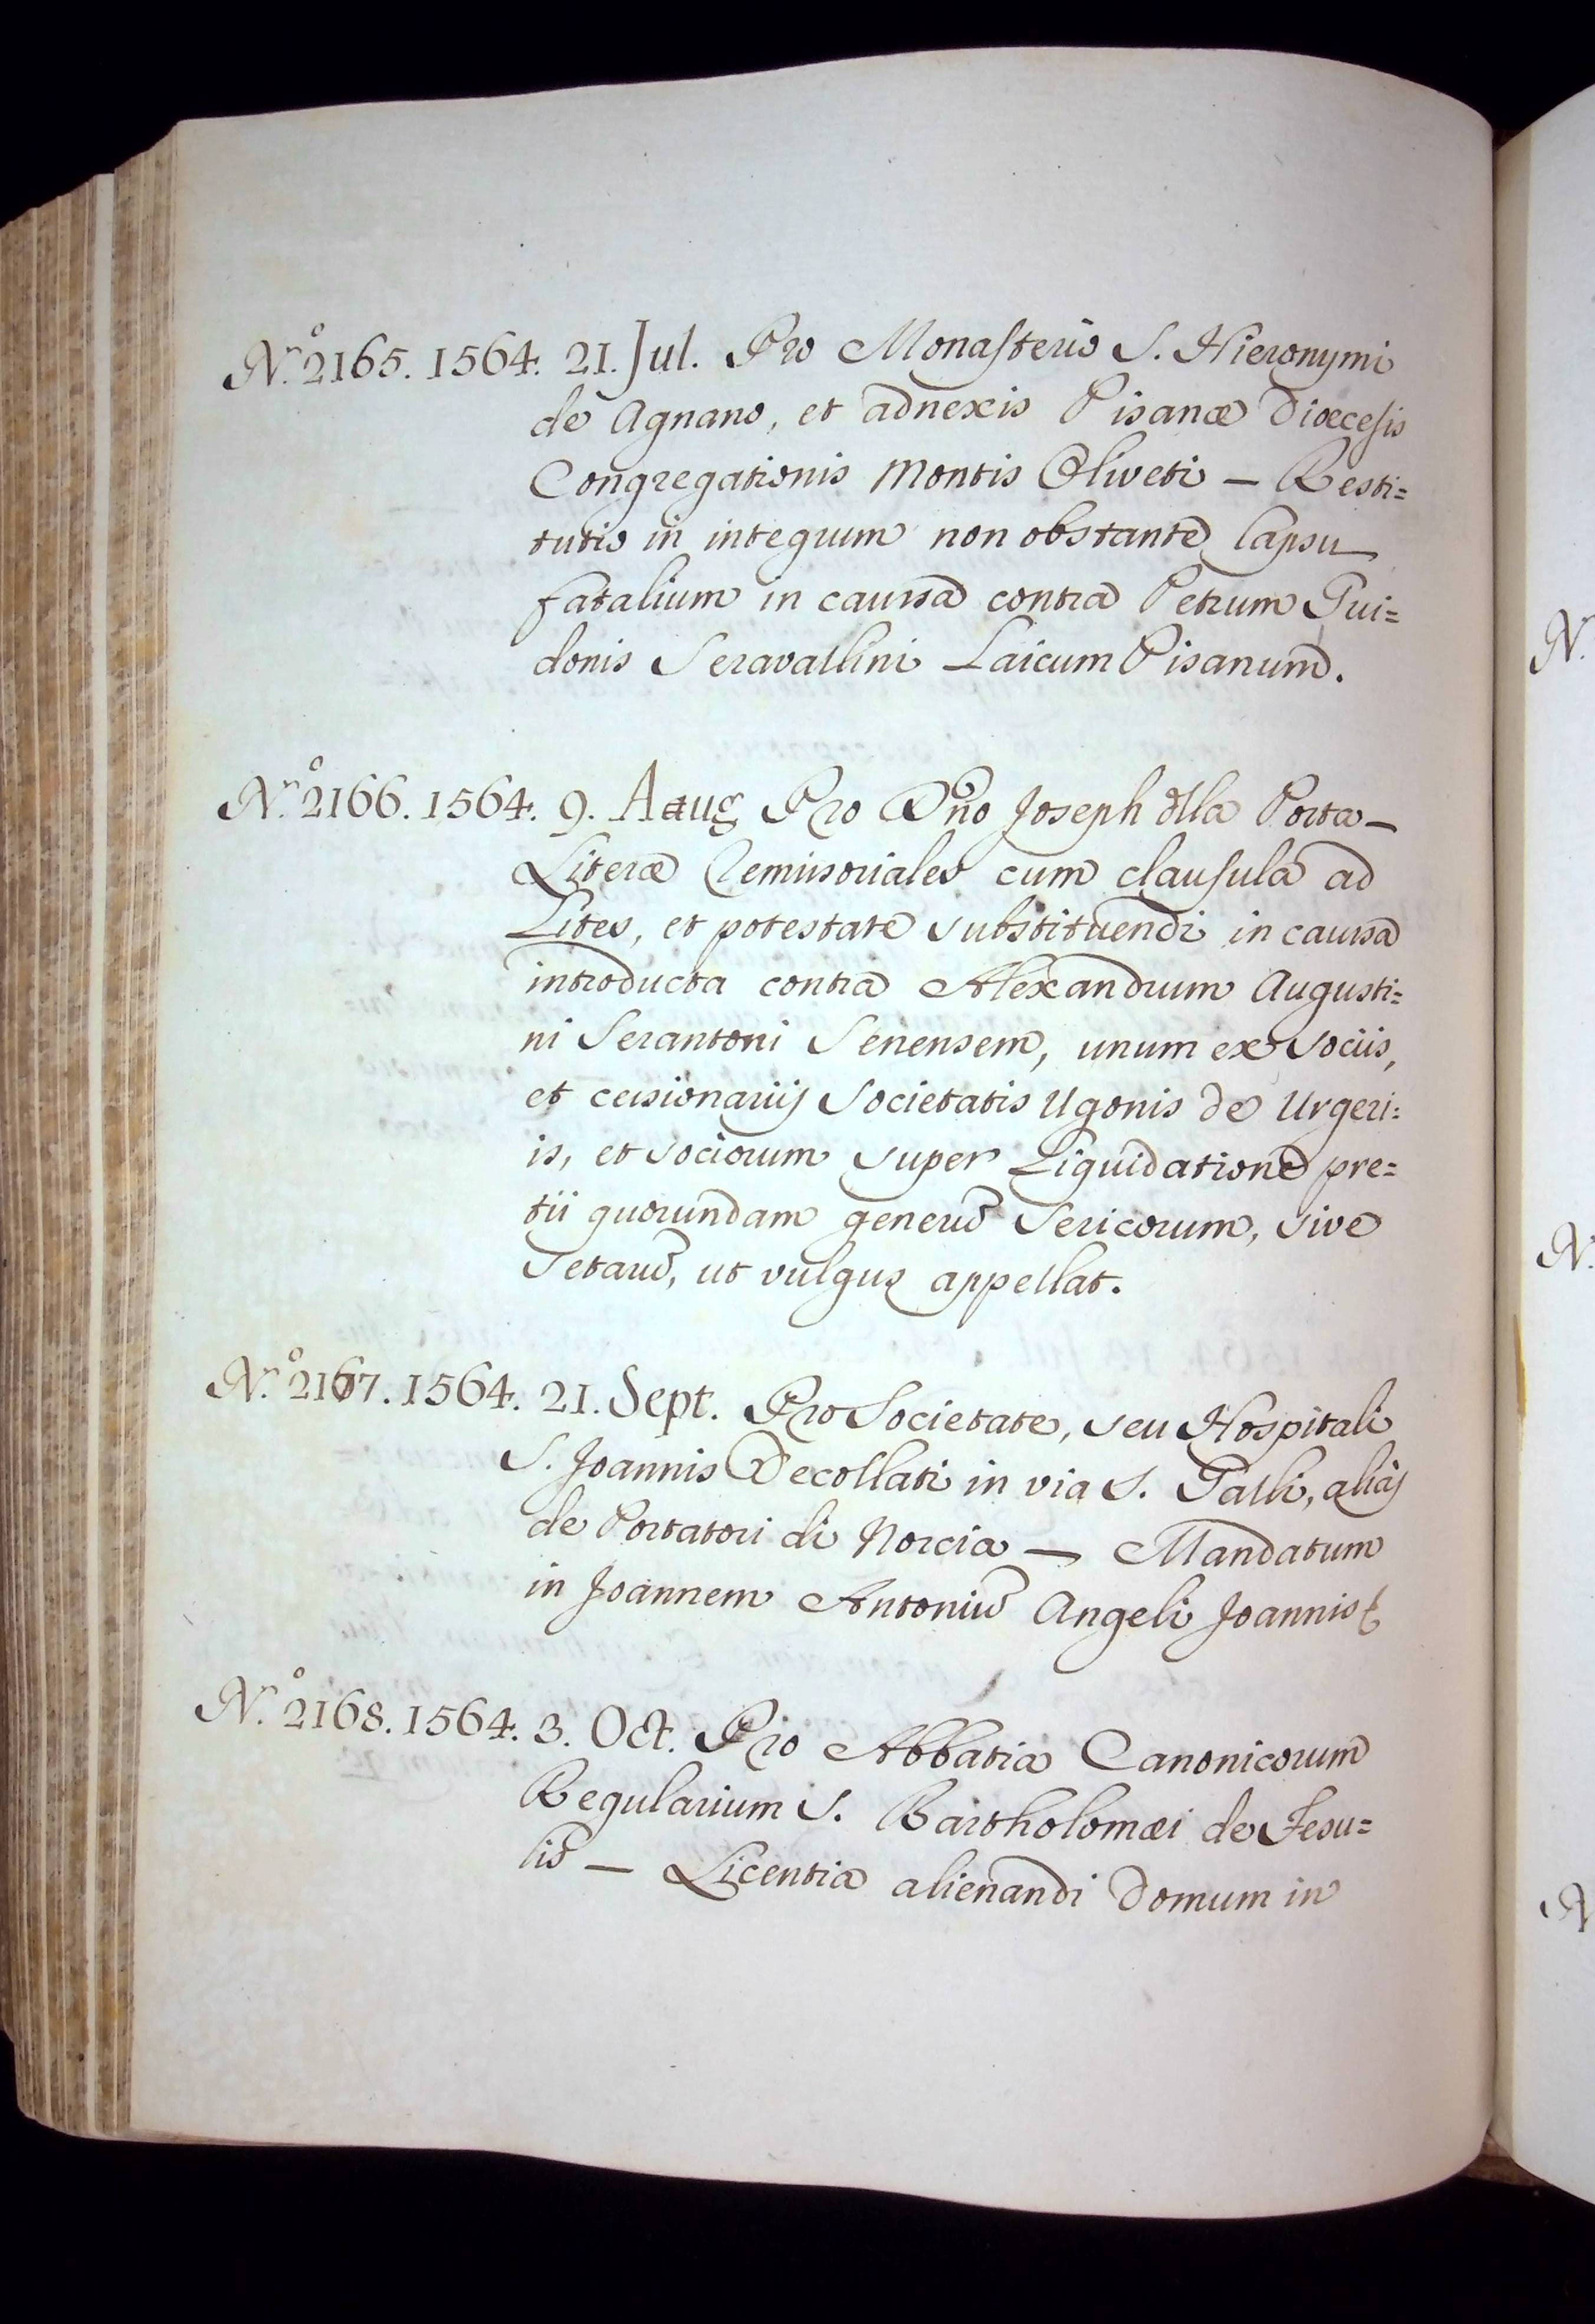 N.º 2165. 1564. 21. Jul. Pro Monasterio S. Hieronymi
de Agnano, et adnexis Pisanæ Diœcesis
Congregationis Montis Oliveti – Resti=
tutio in integrum non obstante lapsu
fatalium in caussa contra Petrum Gui=
donis Seravallini Laicum Pisanum.
N.º 2166. 1564. 9. Aaug Pro Dno Joseph dlla Porta –
Literæ Remissoriales cum clausula ad
Lites, et potestate substituendi in caussa
introducta contra Alexandrum Augusti=
ni Serantoni Senensem, unum ex sociis,
et cessionariis Societatis Ugonis de Urgeri=
is, et sociorum super Liquidatione pre=
tii quorundam generū Sericorum, sive
Setarū, ut vulgus appellat.
N.º 2167. 1564. 21. Sept. Pro Societate, seu Hospitali
S. Joannis Decollati in via S. Galli, alias
de Portatori di Norcia – Mandatum
in Joannem Antoniū Angeli Joannis
N.º 2168. 1564. 3. Oct. Pro Abbatia Canonicorum
Regularium S. Bartholomæi de Fesu=
lis – Licentia alienandi Domum in
N.
N.
N